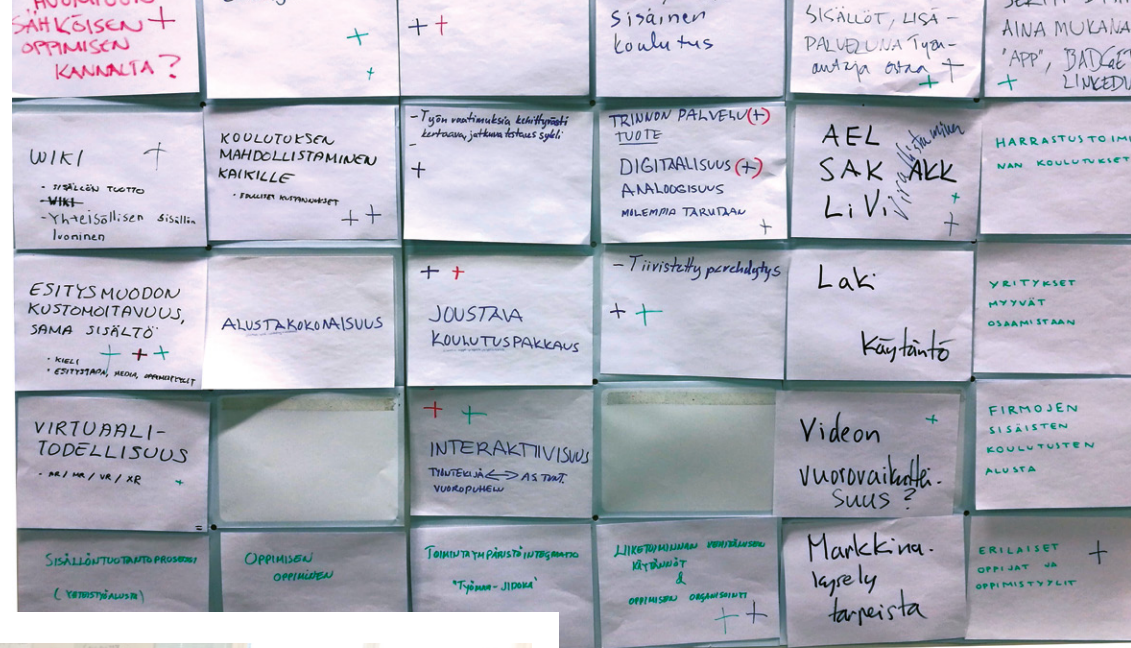 SÄHKÖISEN +
OPPIMISEN
KANNALTA?
+
+
+ +
Sisäinen
koulutus
SISÄLLÖT, LISÄ-
PALVELUNA Työn-
antaja ostaa +
+
AINA MUKANA
"APP", BADGET
+ LINKEDIN
WIKI +
• SISÄLLÖN TUOTTO
- WIKI
- Yhteisöllisen sisällön
luominen
KOULUTUKSEN
MAHDOLLISTAMINEN
KAIKILLE
+ +
- Työn vaatimuksia
-
+
TRINNON PALVELU (+)
TUOTE
DIGITAALISUUS (+)
ANALOGISUUS
MOLEMPIA TARVITAAN
+
AEL
SAK AKK
LiVi
+
+
HARRASTUSTOIMIN
NAN KOULUTUKSET
ESITYSMUODON
KUSTOMOITAVUUS,
SAMA SISÄLTÖ
+ + +
• KIELI
• ESITYSTAPA, MEDIA, OPPIMISTYYLIT
ALUSTAKOKONAISUUS
+ +
JOUSTAVA
KOULUTUSPAKKAUS
- Tiivistetty perehdytys
+ +
Laki
Käytäntö
YRITYKSET
MYYVÄT
OSAAMISTAAN
VIRTUAALI-
TODELLISUUS
• AR / MR / VR / XR +
+ +
INTERAKTIIVISUUS
TYÖNTEKIJÄ <-> AS.TUNT.
VUOROPUHELU
Videon +
vuorovaikuttei-
suus?
FIRMOJEN
SISÄISTEN
KOULUTUSTEN
ALUSTA
SISÄLLÖNTUOTANTOPROSESSI
(YHTEISTYÖALUSTA)
OPPIMISEN
OPPIMINEN
TOIMINTAYMPÄRISTÖINTEGRAATIO
"TYÖMAA-JIDOKA"
LIIKETOIMINNAN KEHITTÄMISEN
KÄYTÄNNÖT
&
OPPIMISEN ORGANISOINTI
+ +
Markkina-
kysely
tarpeista
ERILAISET +
OPPIJAT JA
OPPIMISTYYLIT